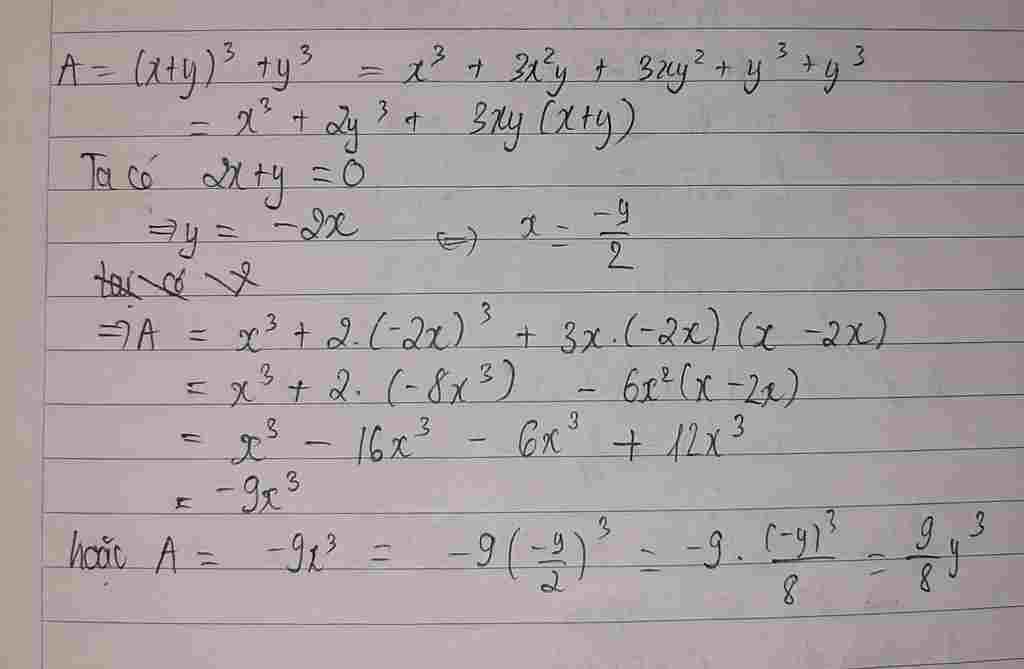 A = (x+y)³ + y³ = x³ + 3x²y + 3xy² + y³ + y³
= x³ + 2y³ + 3xy (x+y)
Ta có 2x+y = 0
⇒ y = -2x ⇔ x = -y/2
⇒ A = x³ + 2.(-2x)³ + 3x.(-2x)(x - 2x)
= x³ + 2.(-8x³) - 6x²(x - 2x)
= x³ - 16x³ - 6x³ + 12x³
= -9x³
hoặc A = -9x³ = -9(-y/2)³ = -9 . (-y)³/8 = 9/8 y³